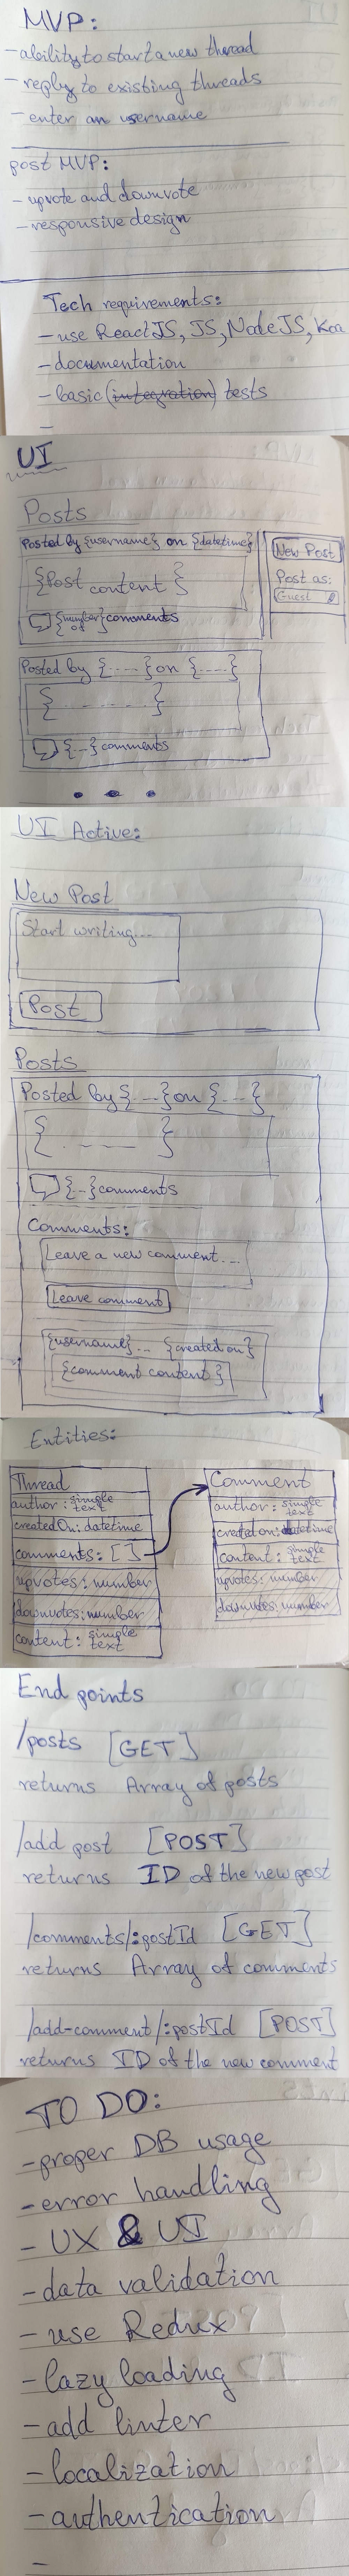 MVP:
- ability to start a new thread
- reply to existing threads
- enter an username
post MVP:
- upvote and downvote
- responsive design
Tech requirements:
- use ReactJS, JS, NodeJS, Koa
- documentation
- basic (integration) tests
-
UI
Posts
Posted by {username} on {datetime}
{Post content}
{number of} comments
New Post
Post as:
Guest
Posted by {----} on {----}
{ - - - - - - }
{--} comments
• • •
UI Active:
New Post
Start writing...
Post
Posts
Posted by {---} on {---}
{ - - - - }
{--} comments
Comments:
Leave a new comment...
Leave comment
{username}... {created on}
{comment content}
Entities:
Thread
author: simple text
createdOn: datetime
comments: [ ]
upvotes: number
downvotes: number
content: simple text
Comment
author: simple text
createdon: datetime
content: simple text
upvotes: number
downvotes: number
End points
/posts [GET]
returns Array of posts
/add post [POST]
returns ID of the new post
/comments/:postId [GET]
returns Array of comments
/add-comment/:postId [POST]
returns ID of the new comment
TO DO:
- proper DB usage
- error handling
- UX & UI
- data validation
- use Redux
- lazy loading
- add linter
- localization
- authentication
-